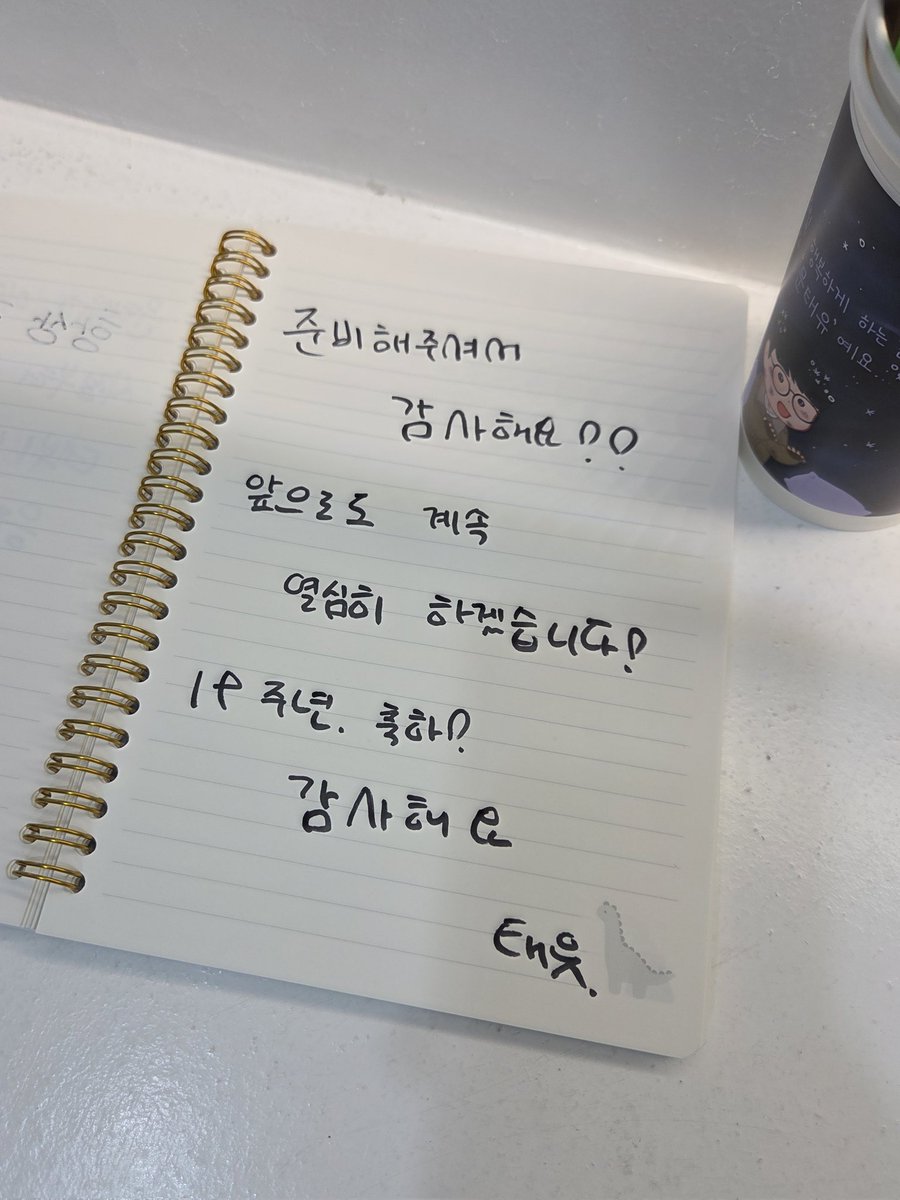 준비해주셔서
감사해요!!
앞으로도 계속
열심히 하겠습니다!
19주년. 축하!
감사해요
태윳.
항상
행복하게 하는
태유' 예요